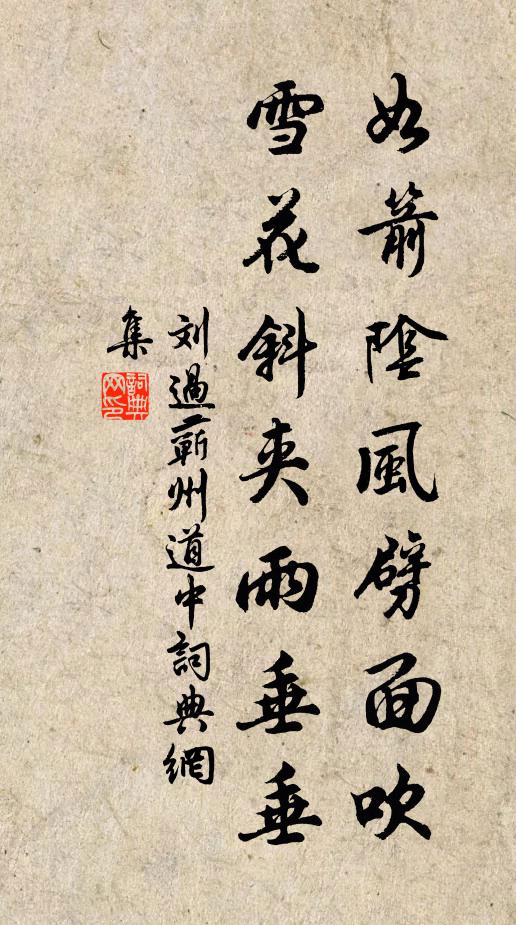 如箭陰風劈面吹
雪花斜夹雨垂垂
刘過蘄州道中詞典網
集
詞典
网印